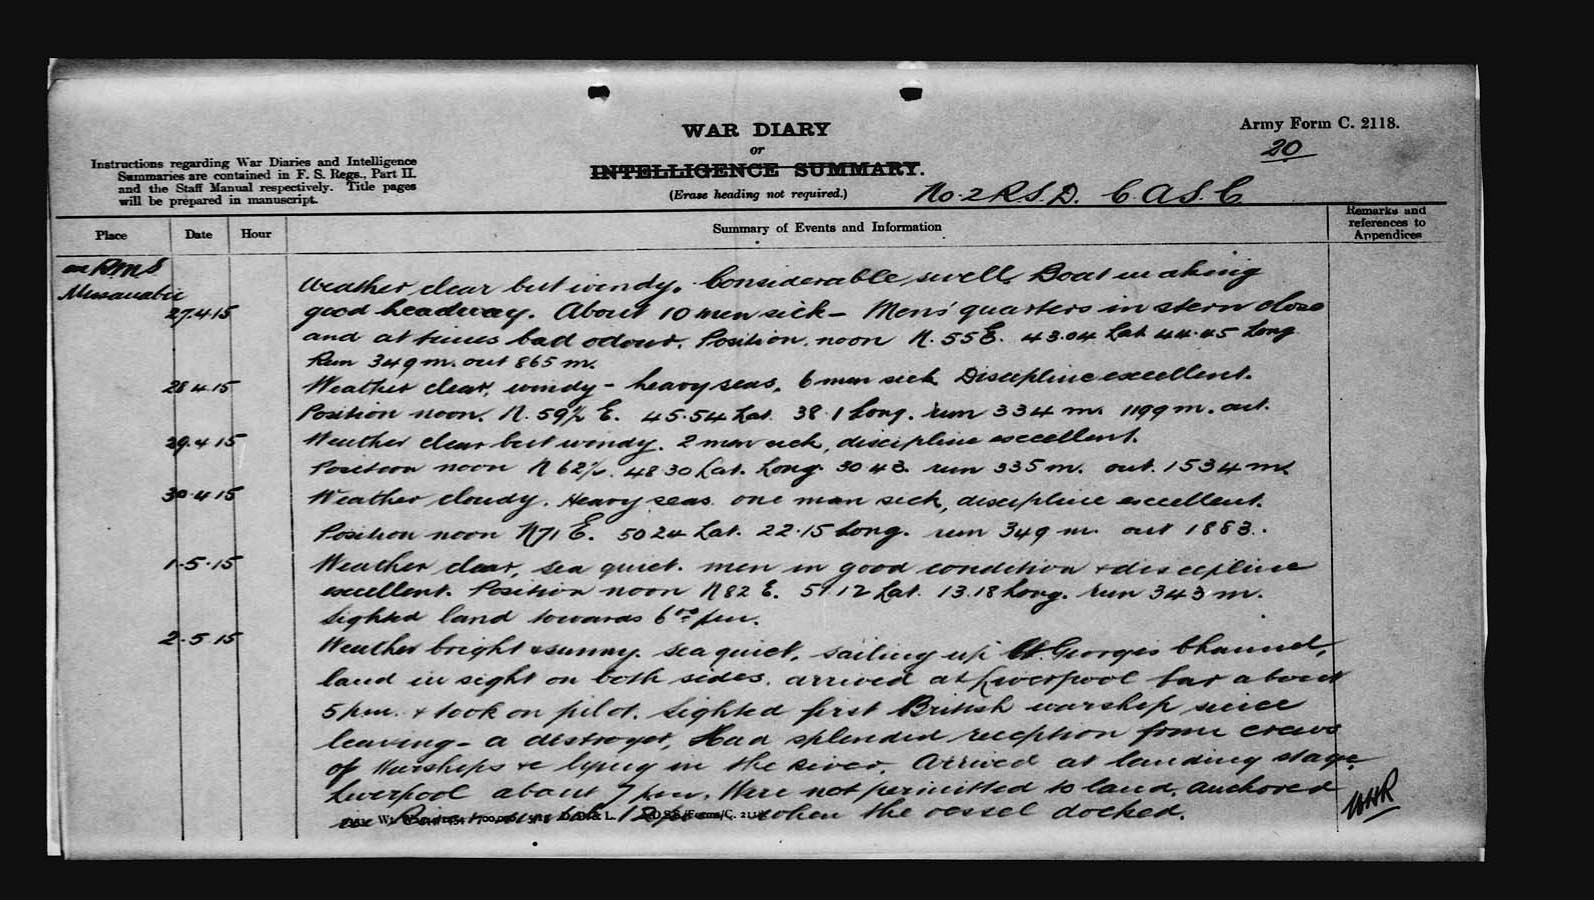 WAR DIARY
or
INTELLIGENCE SUMMARY.
(Erase heading not required.)
Army Form C. 2118.
20
Instructions regarding War Diaries and Intelligence
Summaries are contained in F. S. Regs., Part II.
and the Staff Manual respectively. Title pages
will be prepared in manuscript.
No. 2 R.S.D. C.A.S.C
Place Date Hour Summary of Events and Information Remarks and references to Appendices
on RMS
Missanabie
27.4.15 Weather clear but windy. Considerable swell. Boat making
good headway. About 10 men sick - Men's quarters in stern close
and at times bad odour. Position noon N. 55 E. 43.04 Lat 44.45 Long
Run 349 m. out 865 m.
28.4.15 Weather clear, windy - heavy seas. 6 men sick Discipline excellent.
Position noon. N. 59½ E. 45.54 Lat. 38.1 Long. run 334 m. 1199 m. out.
29.4.15 Weather clear but windy. 2 men sick, discipline excellent.
Position noon N 62½. 48 30 Lat. Long. 30 43. run 335 m. out. 1534 m.
30.4.15 Weather cloudy. Heavy seas. one man sick, discipline excellent.
Position noon N71 E. 50 24 Lat. 22.15 Long. run 349 m. out 1883.
1.5.15 Weather clear, sea quiet. men in good condition + discipline
excellent. Position noon N 82 E. 51 12 Lat. 13.18 Long. run 343 m.
Sighted land towards 6 pm.
2.5.15 Weather bright & sunny. sea quiet, sailing up St. Georges Channel,
land in sight on both sides. arrived at Liverpool bar about
5 pm. + took on pilot. Sighted first British warship since
leaving - a destroyer, Had splendid reception from crews
of Warships &c lying in the River. Arrived at landing stage
Liverpool about 7 pm. Were not permitted to land, anchored
when the vessel docked.
WHR